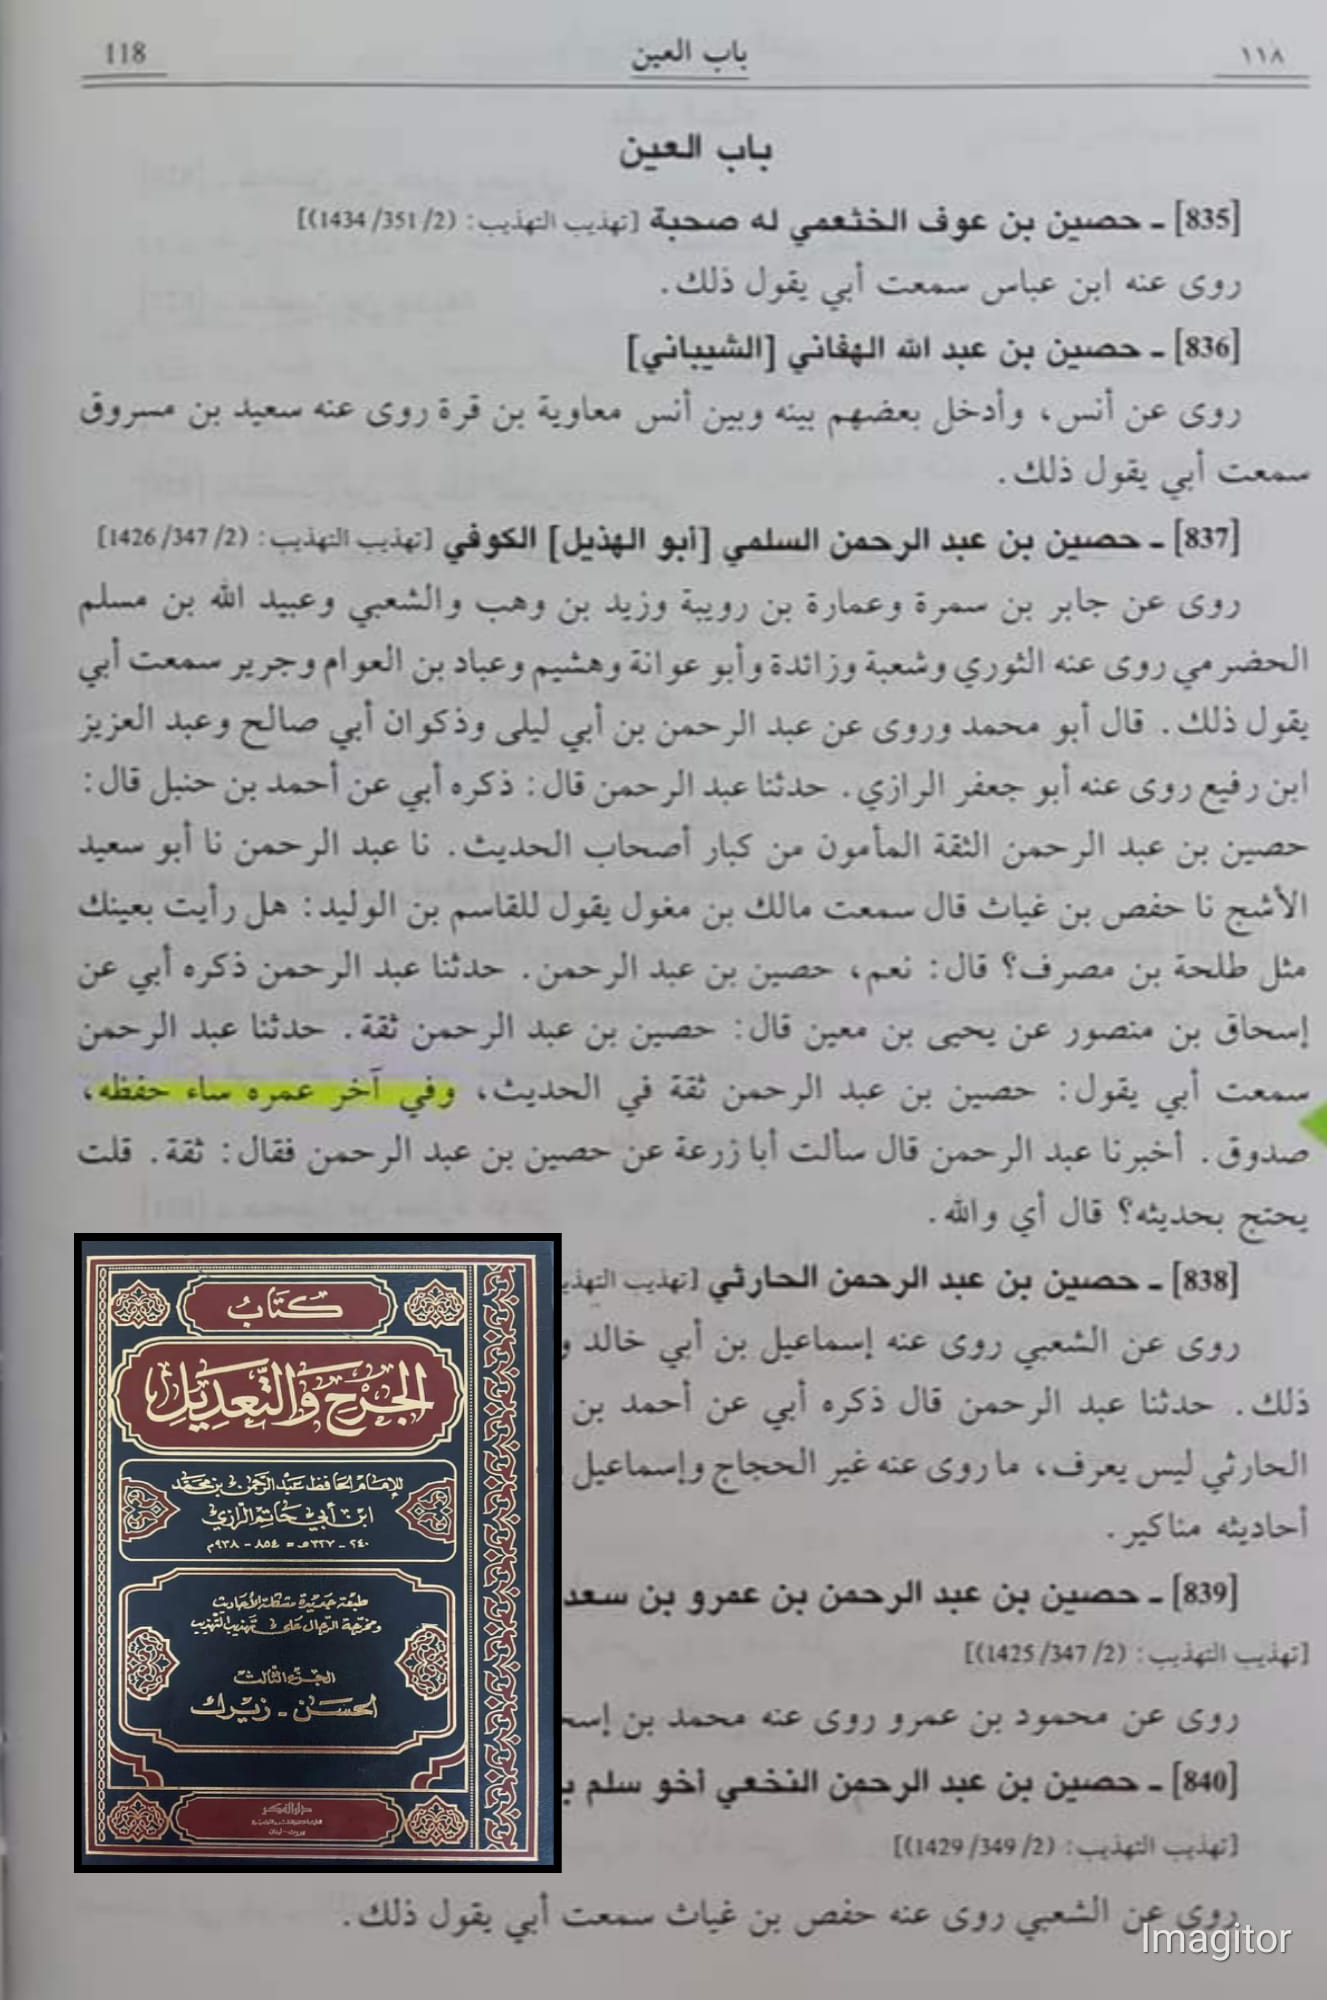 ١١٨ باب العين 118
باب العين
[835] ـ حصين بن عوف الخثعمي له صحبة [تهذيب التهذيب: (2/ 351/ 1434)]
روى عنه ابن عباس سمعت أبي يقول ذلك.
[836] ـ حصين بن عبد الله الهفاني [الشيباني]
روى عن أنس، وأدخل بعضهم بينه وبين أنس معاوية بن قرة روى عنه سعيد بن مسروق
سمعت أبي يقول ذلك.
[837] ـ حصين بن عبد الرحمن السلمي [أبو الهذيل] الكوفي [تهذيب التهذيب: (2/ 347/ 1426]
روى عن جابر بن سمرة وعمارة بن رويبة وزيد بن وهب والشعبي وعبيد الله بن مسلم
الحضرمي روى عنه الثوري وشعبة وزائدة وأبو عوانة وهشيم وعباد بن العوام وجرير سمعت أبي
يقول ذلك. قال أبو محمد وروى عن عبد الرحمن بن أبي ليلى وذكوان أبي صالح وعبد العزيز
ابن رفيع روى عنه أبو جعفر الرازي. حدثنا عبد الرحمن قال: ذكره أبي عن أحمد بن حنبل قال:
حصين بن عبد الرحمن الثقة المأمون من كبار أصحاب الحديث. نا عبد الرحمن نا أبو سعيد
الأشج نا حفص بن غياث قال سمعت مالك بن مغول يقول للقاسم بن الوليد: هل رأيت بعينك
مثل طلحة بن مصرف؟ قال: نعم، حصين بن عبد الرحمن. حدثنا عبد الرحمن ذكره أبي عن
إسحاق بن منصور عن يحيى بن معين قال: حصين بن عبد الرحمن ثقة. حدثنا عبد الرحمن
سمعت أبي يقول: حصين بن عبد الرحمن ثقة في الحديث، وفي آخر عمره ساء حفظه،
صدوق. أخبرنا عبد الرحمن قال سألت أبا زرعة عن حصين بن عبد الرحمن فقال: ثقة. قلت
يحتج بحديثه؟ قال أي والله.
[838] ـ حصين بن عبد الرحمن الحارثي [تهذيب التهذيـ
روى عن الشعبي روى عنه إسماعيل بن أبي خالد و
ذلك. حدثنا عبد الرحمن قال ذكره أبي عن أحمد بن
الحارثي ليس يعرف، ما روى عنه غير الحجاج وإسماعيل
أحاديثه مناكير.
[839] ـ حصين بن عبد الرحمن بن عمرو بن سعد
[تهذيب التهذيب: (2/ 347/ 1425)]
روى عن محمود بن عمرو روى عنه محمد بن إسحـ
[840] ـ حصين بن عبد الرحمن النخعي أخو سلم بـ
[تهذيب التهذيب: (2/ 349/ 1429)]
روى عن الشعبي روى عنه حفص بن غياث سمعت أبي يقول ذلك.
كتاب
الجرح والتعديل
للإمام الحافظ عبد الرحمن بن محمد
ابن أبي حاتم الرازي
٢٤٠ - ٣٢٧هـ = ٨٥٤ - ٩٣٨م
طبعة جديدة مشكلة الأحاديث
ومخرجة الرجال على تهذيب التهذيب
الجزء الثالث
الحسن - زيرك
دار الفكر
بيروت - لبنان
Imagitor